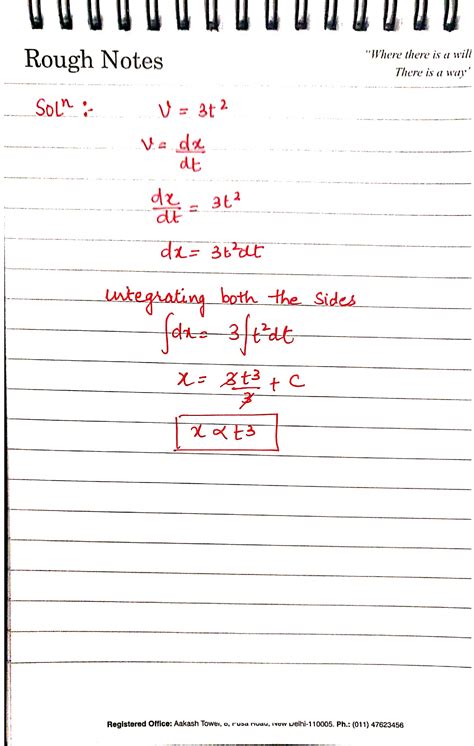 Rough Notes
"Where there is a will
There is a way"
Solⁿ :- v = 3t²
v = dx/dt
dx/dt = 3t²
dx = 3t²dt
integrating both the sides
∫dx = 3∫t²dt
x = 3t³/3 + C
x ∝ t³
Registered Office: Aakash Tower, 8, Pusa Road, New Delhi-110005. Ph.: (011) 47623456